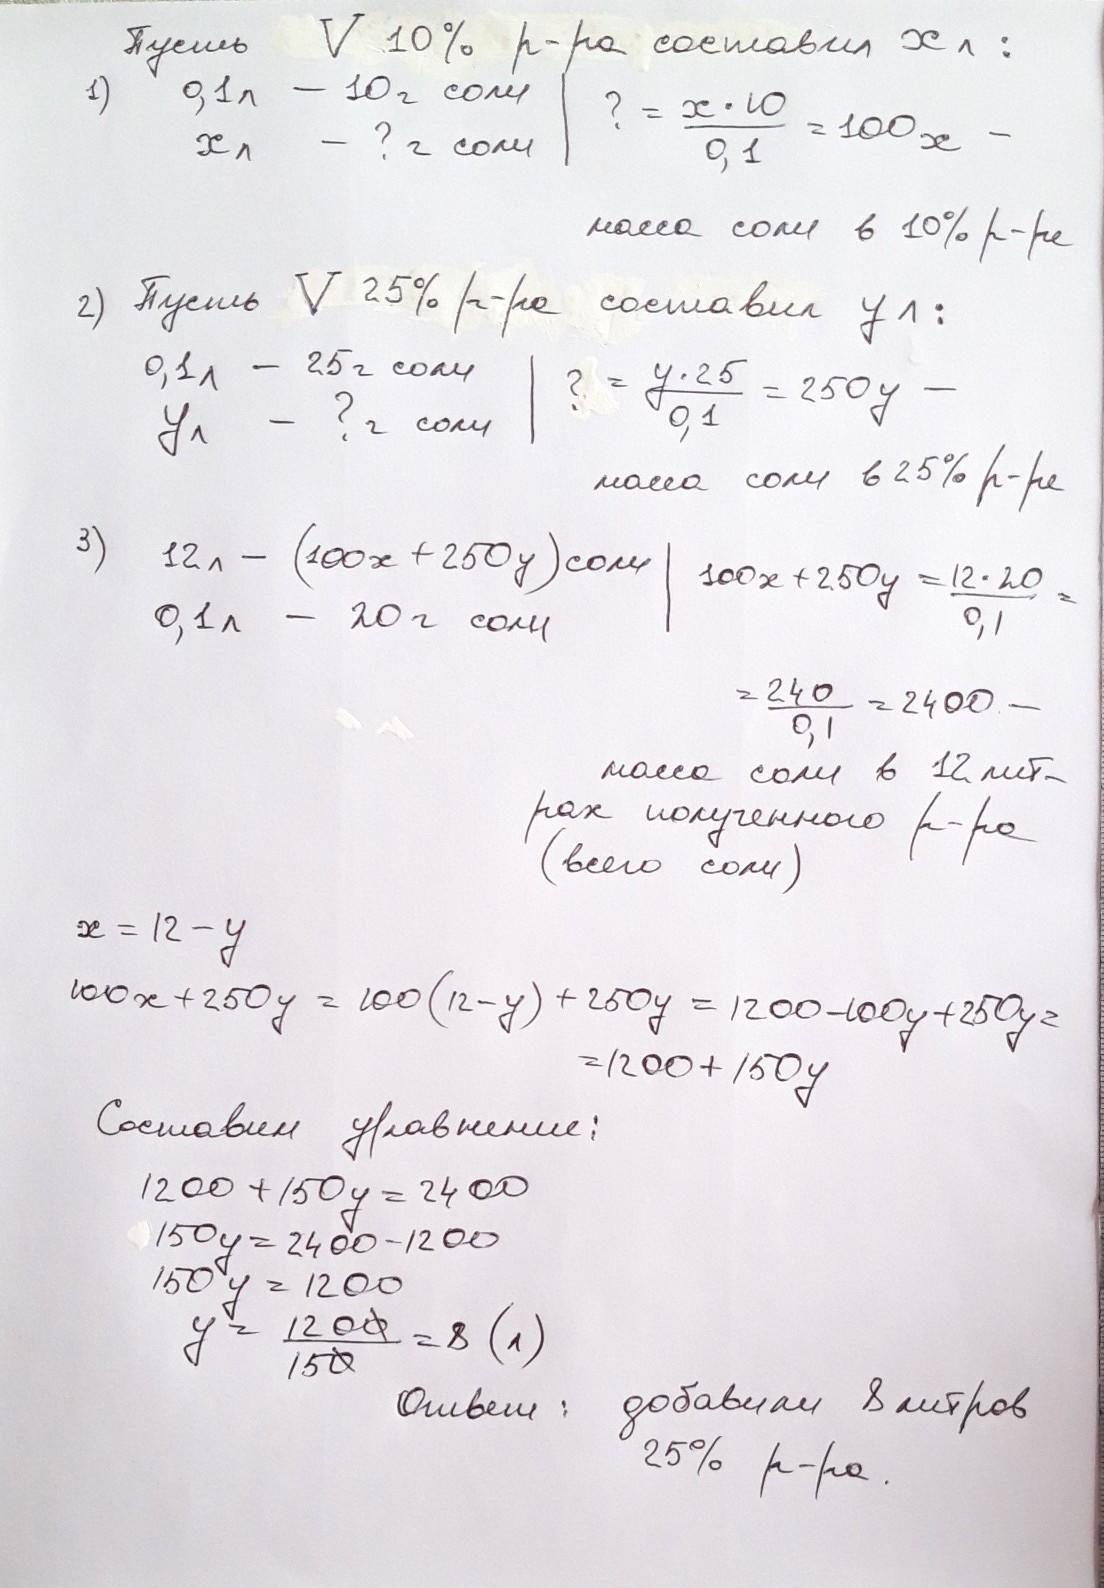 Пусть V 10% р-ра составил x л:
1) 0,1л – 10г соли | ? = x·10/0,1 = 100x –
xл – ? г соли
масса соли в 10% р-ре
2) Пусть V 25% р-ра составил y л:
0,1л – 25г соли | ? = y·25/0,1 = 250y –
yл – ? г соли
масса соли в 25% р-ре
3) 12л – (100x + 250y) соли | 100x + 250y = 12·20/0,1 =
0,1л – 20 г соли
= 240/0,1 = 2400 –
масса соли в 12 лит-
рах полученного р-ра
(всего соли)
x = 12 – y
100x + 250y = 100(12–y) + 250y = 1200–100y+250y =
= 1200 + 150y
Составим уравнение:
1200 + 150y = 2400
150y = 2400 – 1200
150y = 1200
y = 1200/150 = 8 (л)
Ответ: добавили 8 литров
25% р-ра.